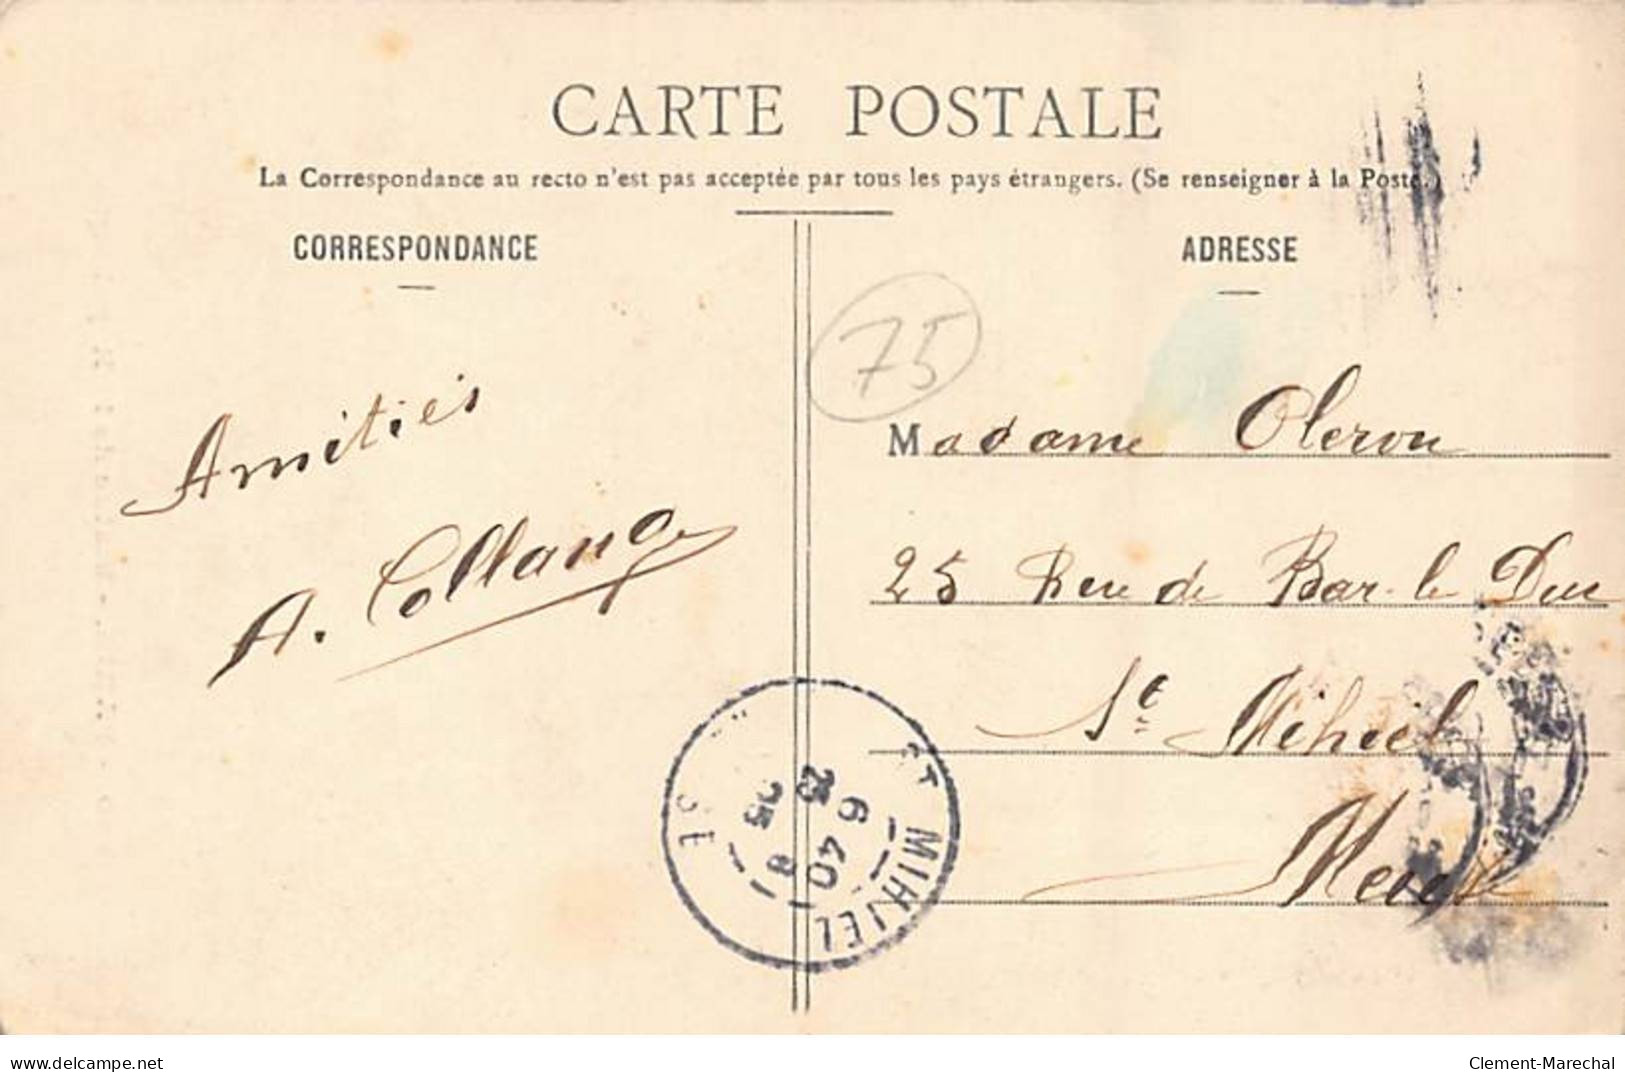 CARTE POSTALE
La Correspondance au recto n'est pas acceptée par tous les pays étrangers. (Se renseigner à la Poste.)
CORRESPONDANCE
Amitiés
A. Collange
ADRESSE
75
Madame Oleron
25 Rue de Bar-le Duc
St Mihiel
Meuse
ST MIHIEL
6 40
25 8
05
delcampe.net
Clement-Marechal